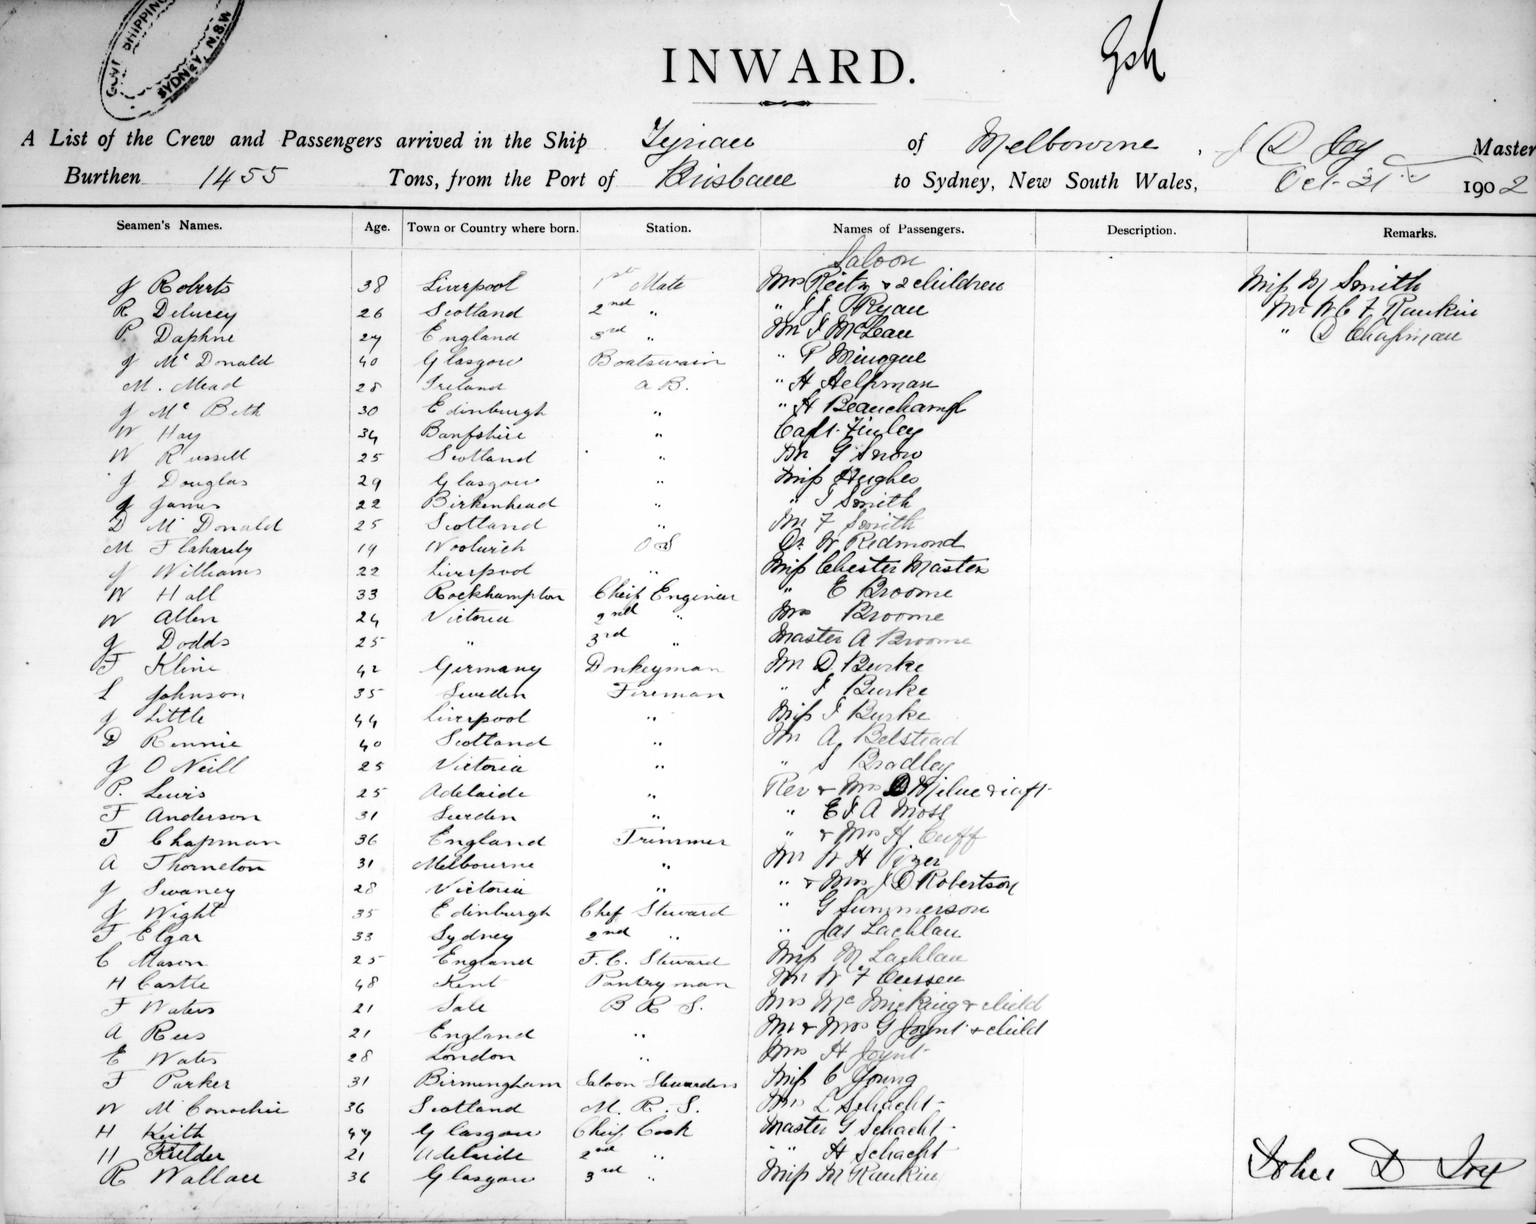 GOVT SHIPPING
SYDNEY N.S.W
INWARD.
A List of the Crew and Passengers arrived in the Ship Tyrian of Melbourne, J D Joy Master
Burthen 1455 Tons, from the Port of Brisbane to Sydney, New South Wales, Oct. 31st 1902
Seamen's Names. Age. Town or Country where born. Station. Names of Passengers. Description. Remarks.
Saloon
J Roberts 38 Liverpool 1st Mate Mrs Reitz & 2 children Miss M Smith
R Delucey 26 Scotland 2nd " " J J Ryan Mr W C F Rankin
P. Daphne 27 England 3rd " Mr J McLean " D Chapman
J McDonald 40 Glasgow Boatswain " P Minogue
M. Mead 28 Ireland A B. " H Helpman
J Mc Beth 30 Edinburgh " " H Beauchamp
W Hay 34 Banfshire " Capt. Finley
W Russell 25 Scotland " Mr G Snow
J Douglas 29 Glasgow " Miss Hughes
J James 22 Birkenhead " " J Smith
D McDonald 25 Scotland " Mr F Smith
M Flaharty 19 Woolwich O S Dr W Redmond
J Williams 22 Liverpool " Miss Chester Master
W Hall 33 Rockhampton Cheif Engineer " E Broome
W Allen 24 Victoria 2nd " Mrs Broome
J Dodds 25 " 3rd " Master A Broome
F Kline 42 Germany Dnkeyman Mr D Burke
L Johnson 35 Sweden Fireman " J Burke
J Little 44 Liverpool " Miss J Burke
D Rennie 40 Scotland " Mr A Belstead
J O Neill 25 Victoria " " S Bradley
P. Lewis 25 Adelaide " Rev & Mrs Milne & inft
F Anderson 31 Sweden " " E J A Moss
T Chapman 36 England Trimmer " & Mrs H Cuff
A Thorneton 31 Melbourne " Mr W H Vizer
J Swaney 28 Victoria " " & Mrs J D Robertson
J Wight 35 Edinburgh Chef Steward " G Summerson
F Elgar 33 Sydney 2nd " " Jas Lachlan
C Mason 25 England F. C. Steward Miss M Lachlan
H Castle 48 Kent Pantryman Mr W F
F Waters 21 Sale B R S. Mrs Mc Micking & child
A Rees 21 England " Mr & Mrs G Joynt & child
E Wates 28 London " Mrs H Joynt
F Parker 31 Birmingham Saloon Stewardess Miss C Young
W McConochie 36 Scotland M. R. S. Mrs L Schacht
H Keith 47 Glasgow Cheif Cook Master G Schacht
H Fielder 21 Adelaide 2nd " " " H Schacht
R Wallace 36 Glasgow 3rd " Miss M Rankin
John D Joy